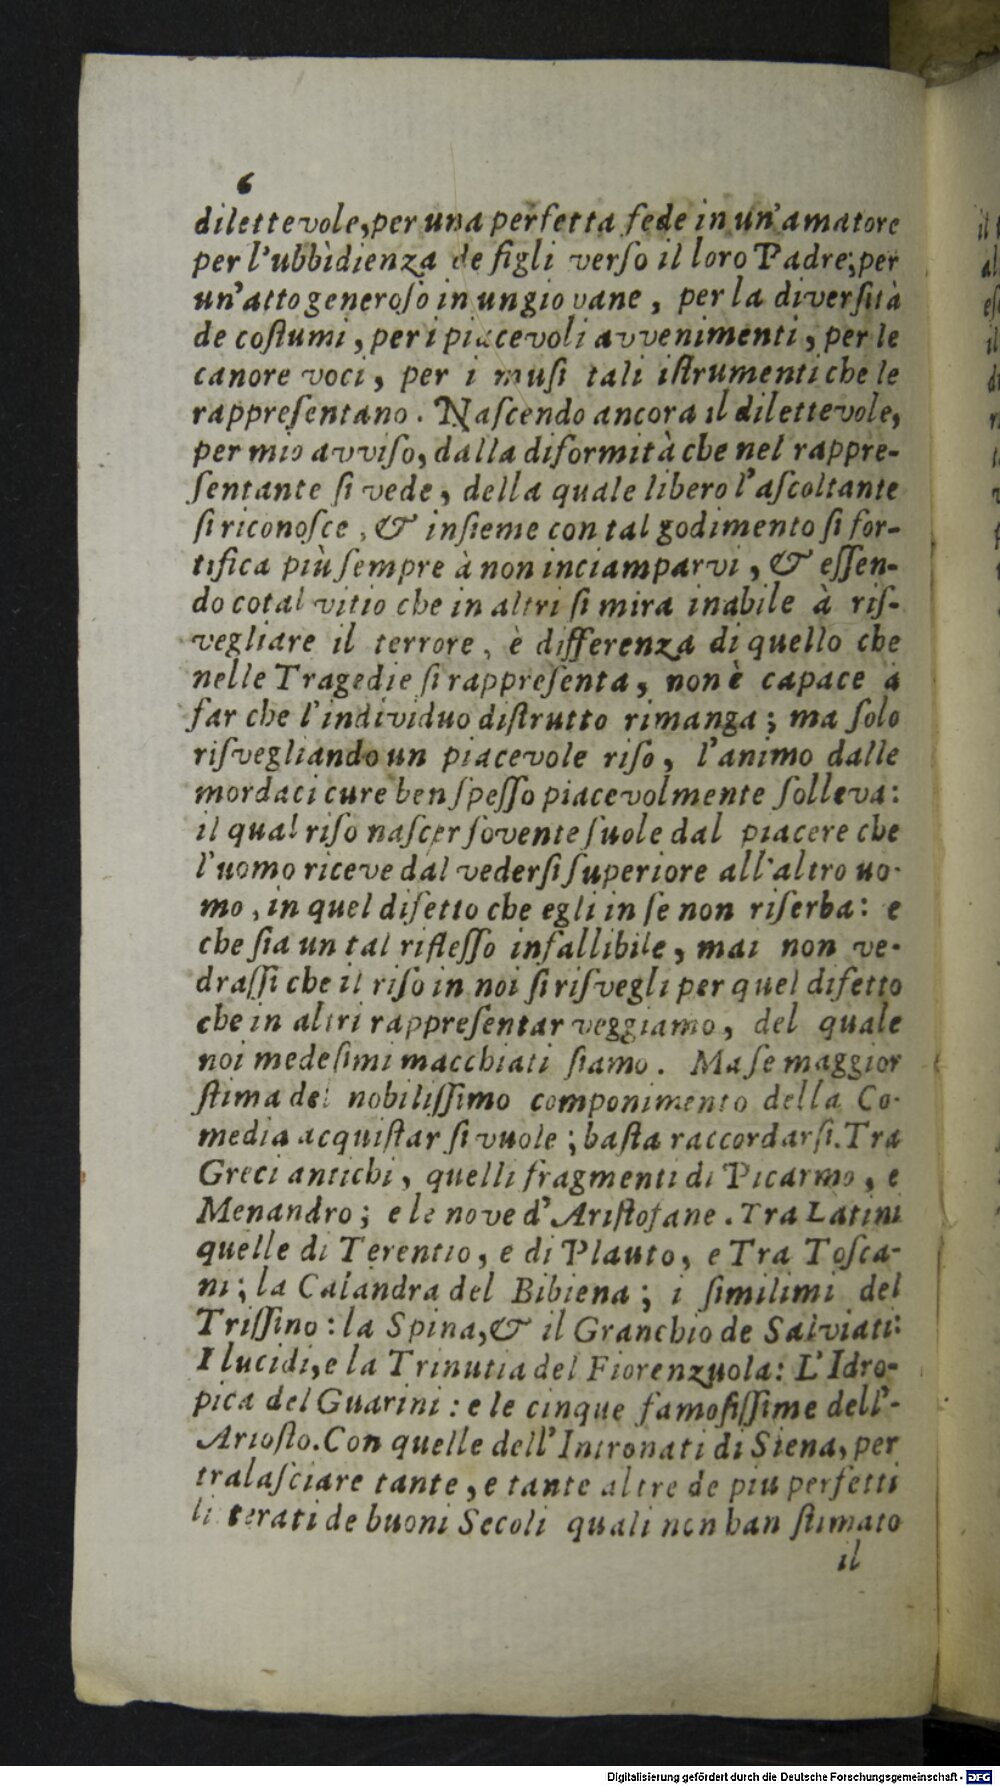 6
dilettevole, per una perfetta fede in un'amatore
per l'ubbìdienza de figli verſo il loro Padre; per
un'atto generoſo in un giovane, per la diverſità
de coſtumi, per i piacevoli avvenimenti, per le
canore voci, per i muſi tali iſtrumenti che le
rappreſentano. Naſcendo ancora il dilettevole,
per mio avviſo, dalla diformità che nel rappre-
ſentante ſi vede, della quale libero l'aſcoltante
ſi riconoſce, & inſieme con tal godimento ſi for-
tifica più ſempre à non inciamparvi, & eſſen-
do cotal vitio che in altri ſi mira inabile à riſ-
vegliare il terrore, è differenza di quello che
nelle Tragedie ſi rappreſenta, non è capace a
far che l'individuo diſtrutto rimanga; ma ſolo
riſvegliando un piacevole riſo, l'animo dalle
mordaci cure ben ſpeſſo piacevolmente ſolleva:
il qual riſo naſcer ſovente ſuole dal piacere che
l'uomo riceve dal vederſi ſuperiore all'altro uo-
mo, in quel difetto che egli in ſe non riſerba: e
che ſia un tal rifleſſo infallibile, mai non ve-
draſſi che il riſo in noi ſi riſvegli per quel difetto
che in altri rappreſentar veggiamo, del quale
noi medeſimi macchiati ſiamo. Ma ſe maggior
ſtima del nobiliſſimo componimento della Co-
media acquiſtar ſi vuole; baſta raccordarſi. Tra
Greci antichi, quelli fragmenti di Picarmo, e
Menandro; e le nove d'Ariſtofane. Tra Latini
quelle di Terentio, e di Plauto, e Tra Toſca-
ni; la Calandra del Bibiena; i ſimilimi del
Triſſino: la Spina, & il Granchio de Salviati:
I lucidi, e la Trinutia del Fiorenzuola: L'Idro-
pica del Guarini: e le cinque famoſiſſime dell'-
Arioſto. Con quelle dell'Intronati di Siena, per
tralaſciare tante, e tante altre de piu perfetti
literati de buoni Secoli quali non han ſtimato
il
Digitalisierung gefördert durch die Deutsche Forschungsgemeinschaft - DFG